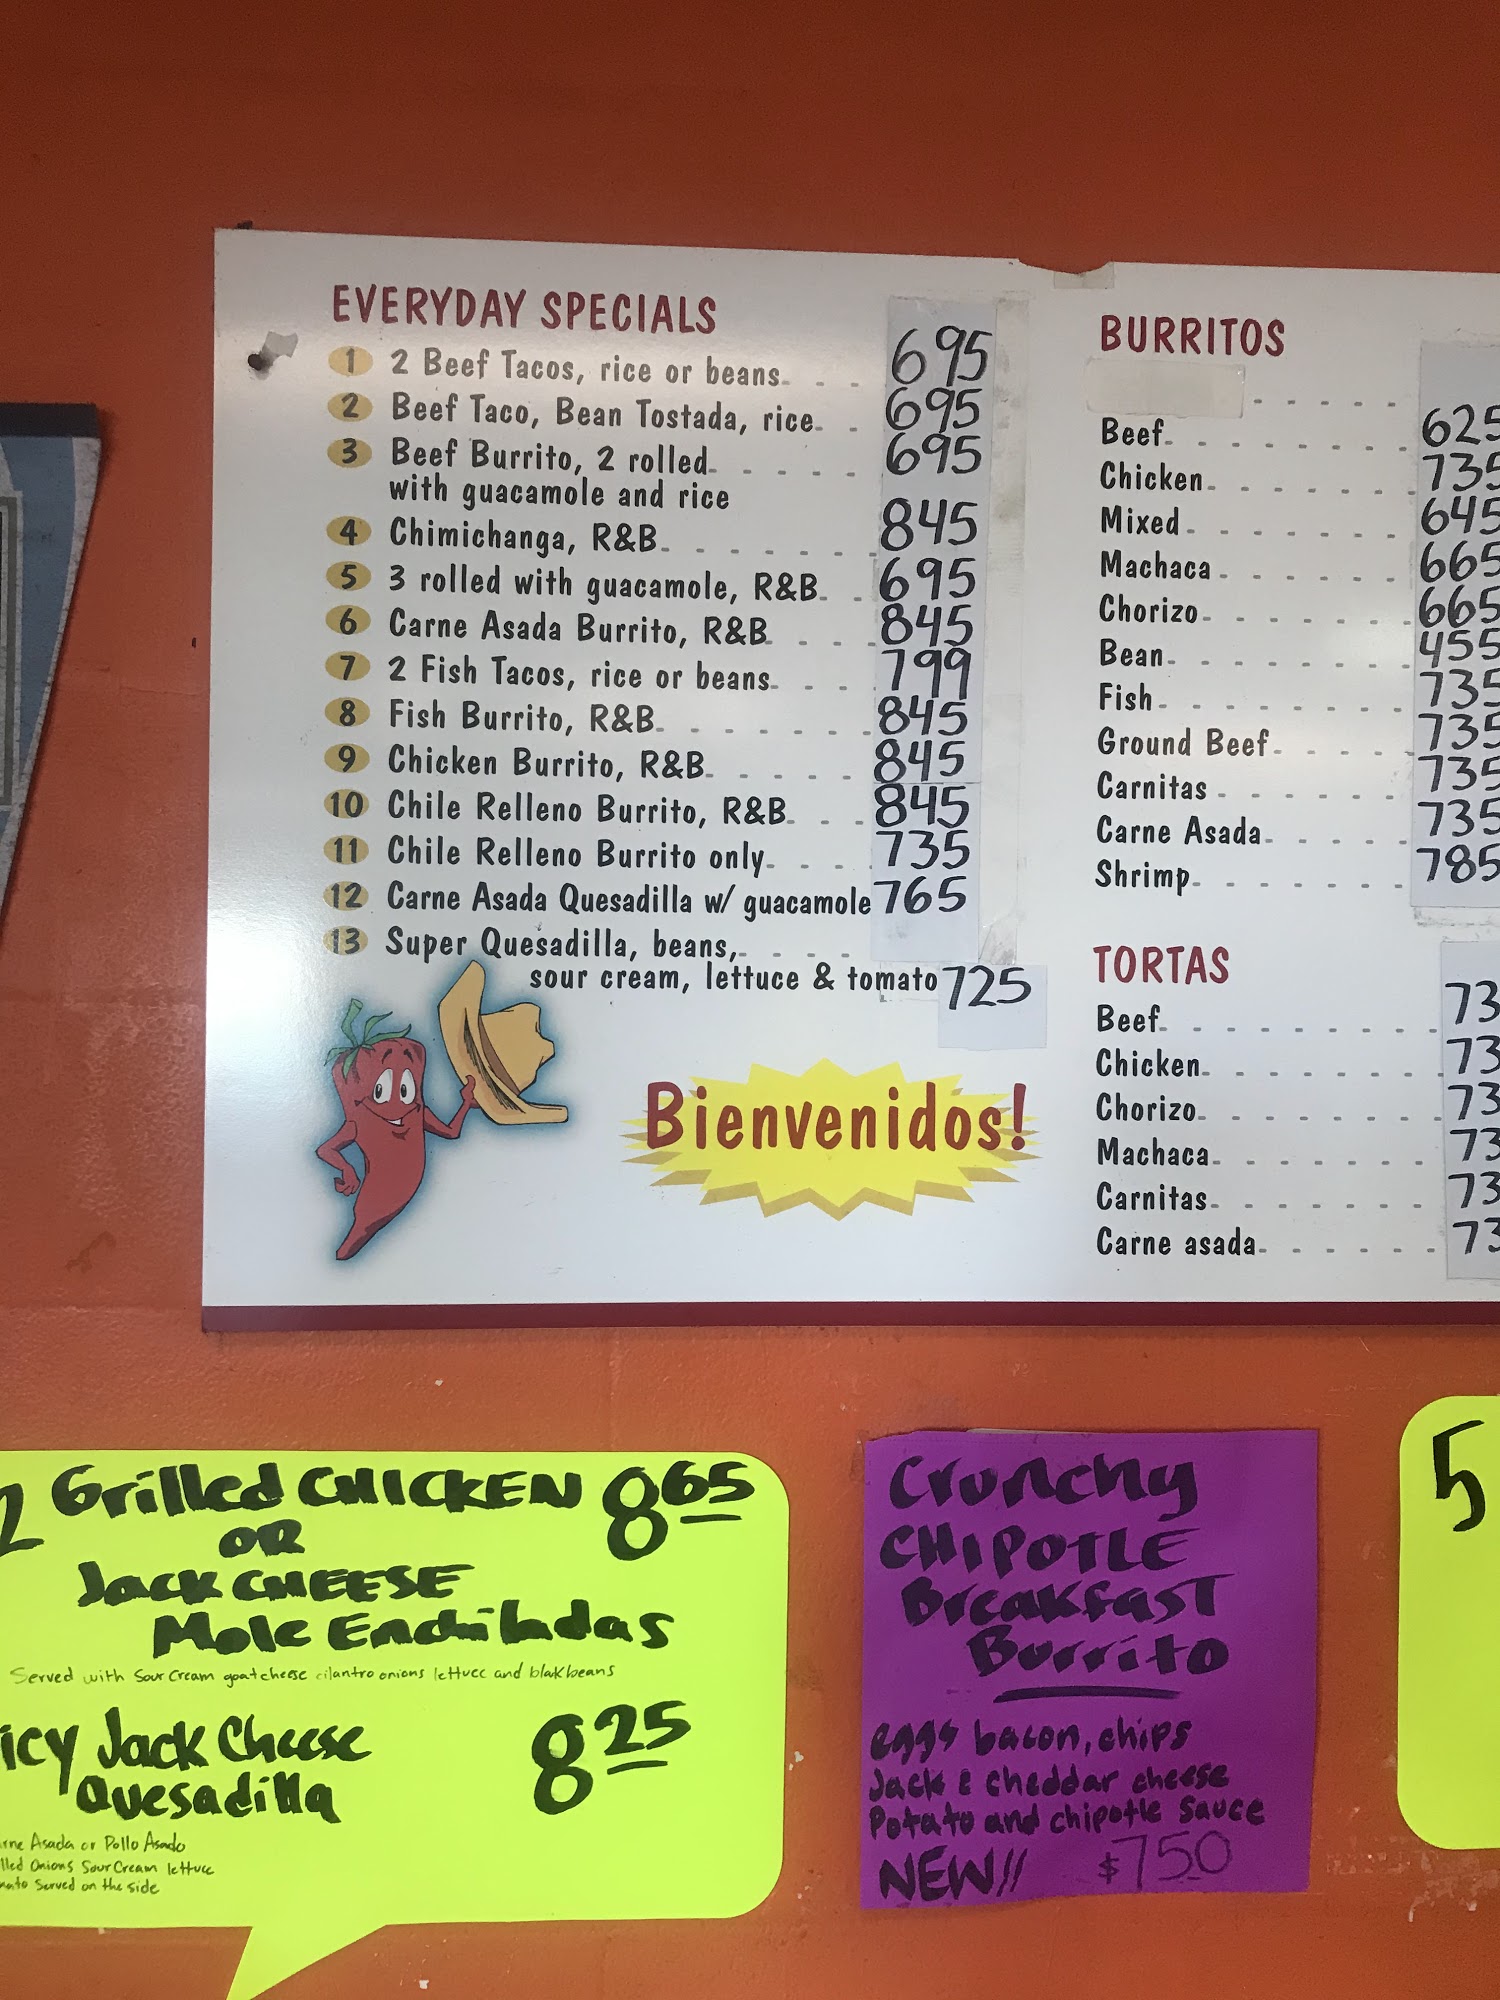 EVERYDAY SPECIALS
1 2 Beef Tacos, rice or beans 695
2 Beef Taco, Bean Tostada, rice 695
3 Beef Burrito, 2 rolled 695
with guacamole and rice
4 Chimichanga, R&B 845
5 3 rolled with guacamole, R&B 695
6 Carne Asada Burrito, R&B 845
7 2 Fish Tacos, rice or beans 799
8 Fish Burrito, R&B 845
9 Chicken Burrito, R&B 845
10 Chile Relleno Burrito, R&B 845
11 Chile Relleno Burrito only 735
12 Carne Asada Quesadilla w/ guacamole 765
13 Super Quesadilla, beans,
sour cream, lettuce & tomato 725
Bienvenidos!
BURRITOS
Beef 625
Chicken 735
Mixed 645
Machaca 665
Chorizo 665
Bean 455
Fish 735
Ground Beef 735
Carnitas 735
Carne Asada 735
Shrimp 785
TORTAS
Beef 73
Chicken 73
Chorizo 73
Machaca 73
Carnitas 73
Carne asada 73
2 Grilled CHICKEN 865
OR
Jack CHEESE
Mole Enchiladas
Served with Sour Cream goat cheese cilantro onions lettuce and blak beans
icy Jack Cheese 825
Quesadilla
Asada or Pollo Asado
Onions Sour Cream lettuce
Served on the side
Crunchy
CHIPOTLE
Breakfast
Burrito
eggs bacon, chips
Jack & cheddar cheese
Potato and chipotle sauce
NEW!! $750
5